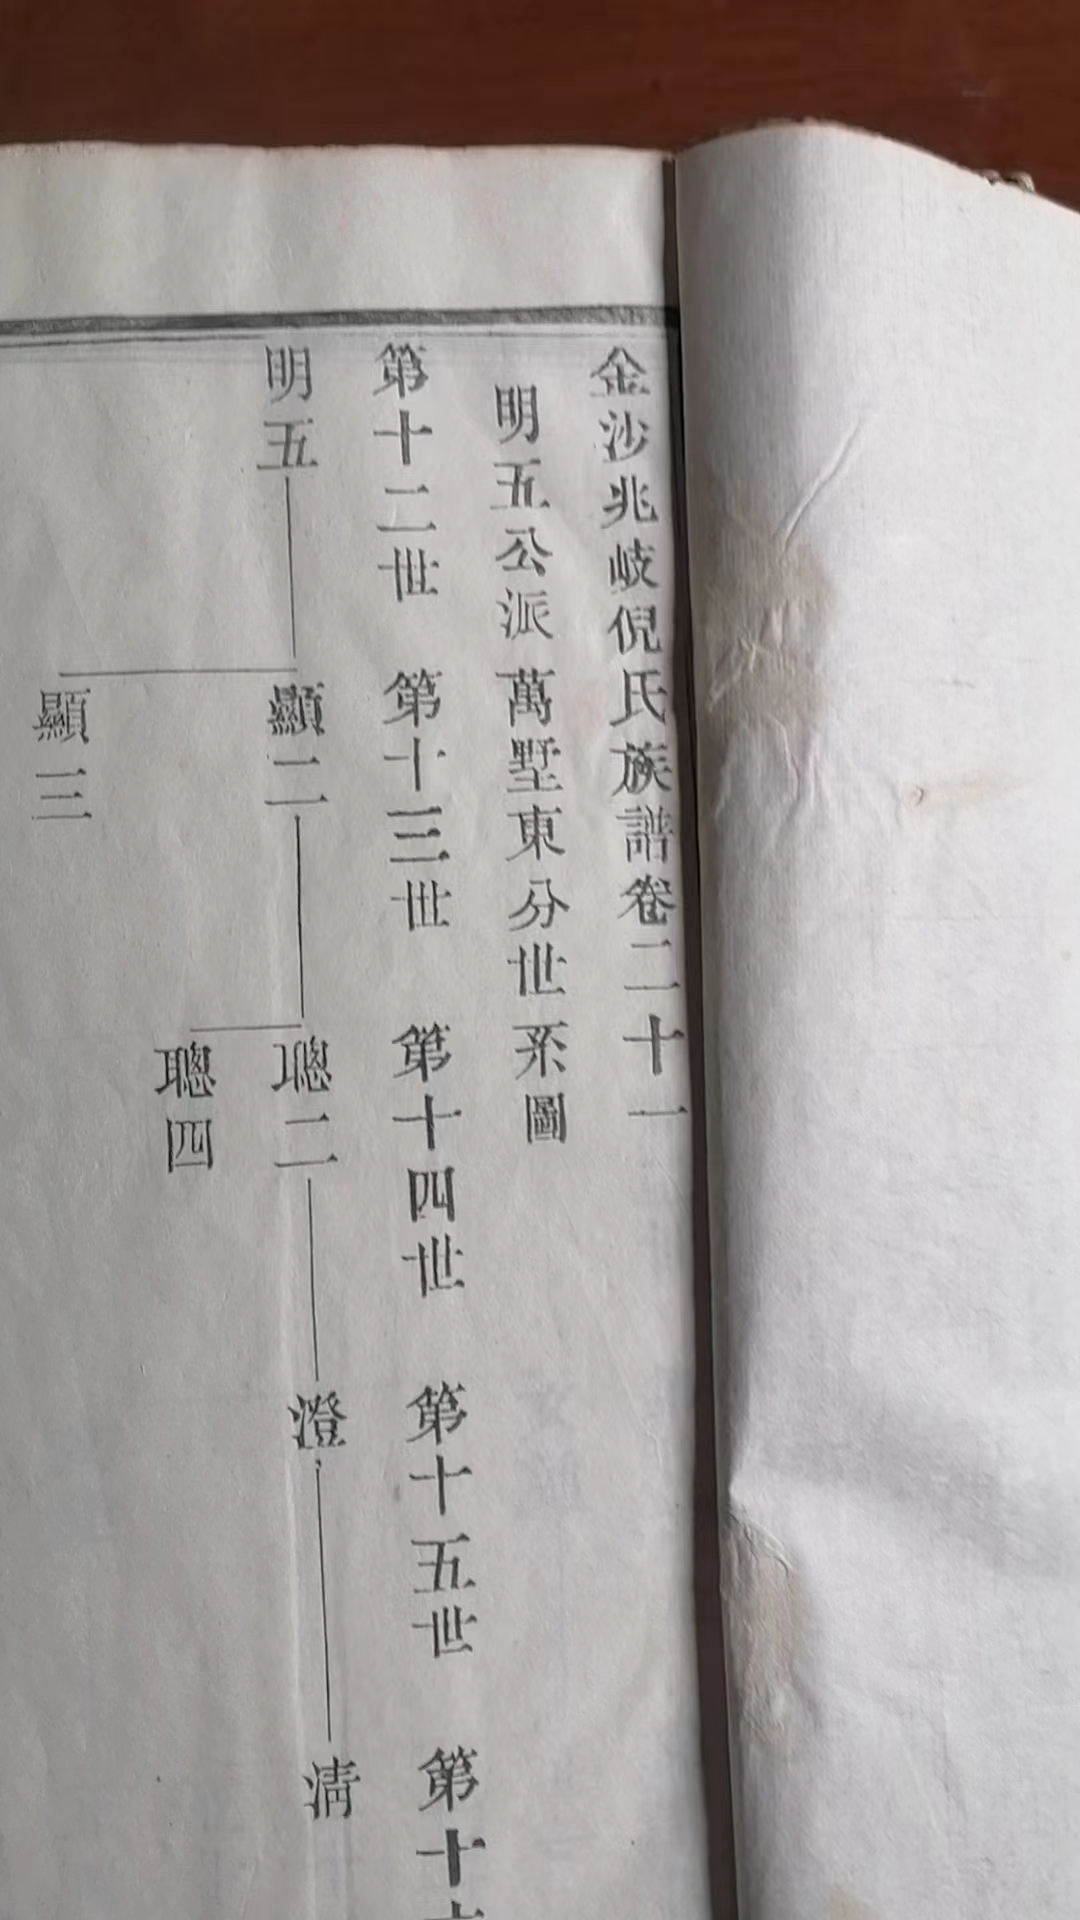 金沙兆岐倪氏族譜卷二十一
明五公派萬墅東分世系圖
第十二世 第十三世 第十四世 第十五世 第十
明五 顯二 聰二 澄 清
聰四
顯三